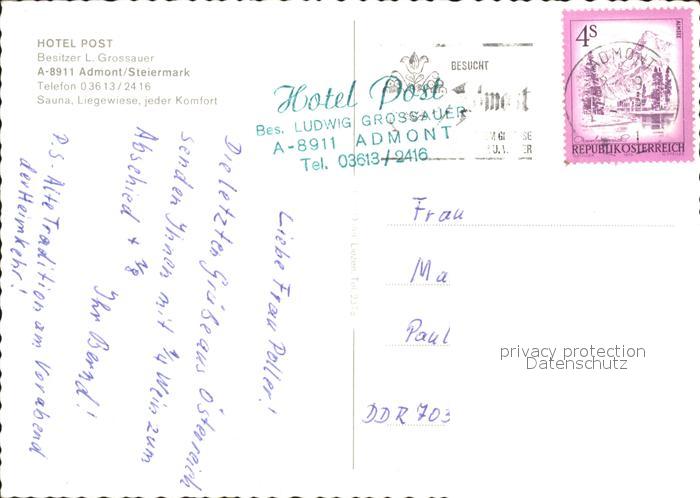 HOTEL POST
Besitzer L. Grossauer
A-8911 Admont/Steiermark
Telefon 03613/2416
Sauna, Liegewiese, jeder Komfort
Hotel Post
Bes. LUDWIG GROSSAUER
A-8911 ADMONT
Tel. 03613/2416
BESUCHT
Admont
ADMONT
4S
ALMSEE
REPUBLIK ÖSTERREICH
Liebe Frau Poller!
Die letzten Grüße aus Österreich
senden Ihnen mit 1/4 Wein zum
Abschied + 1/8
Ihr Bernd!
P.S. Alte Tradition am Vorabend
der Heimkehr!
Frau
Ma
Paul
DDR 703
privacy protection
Datenschutz